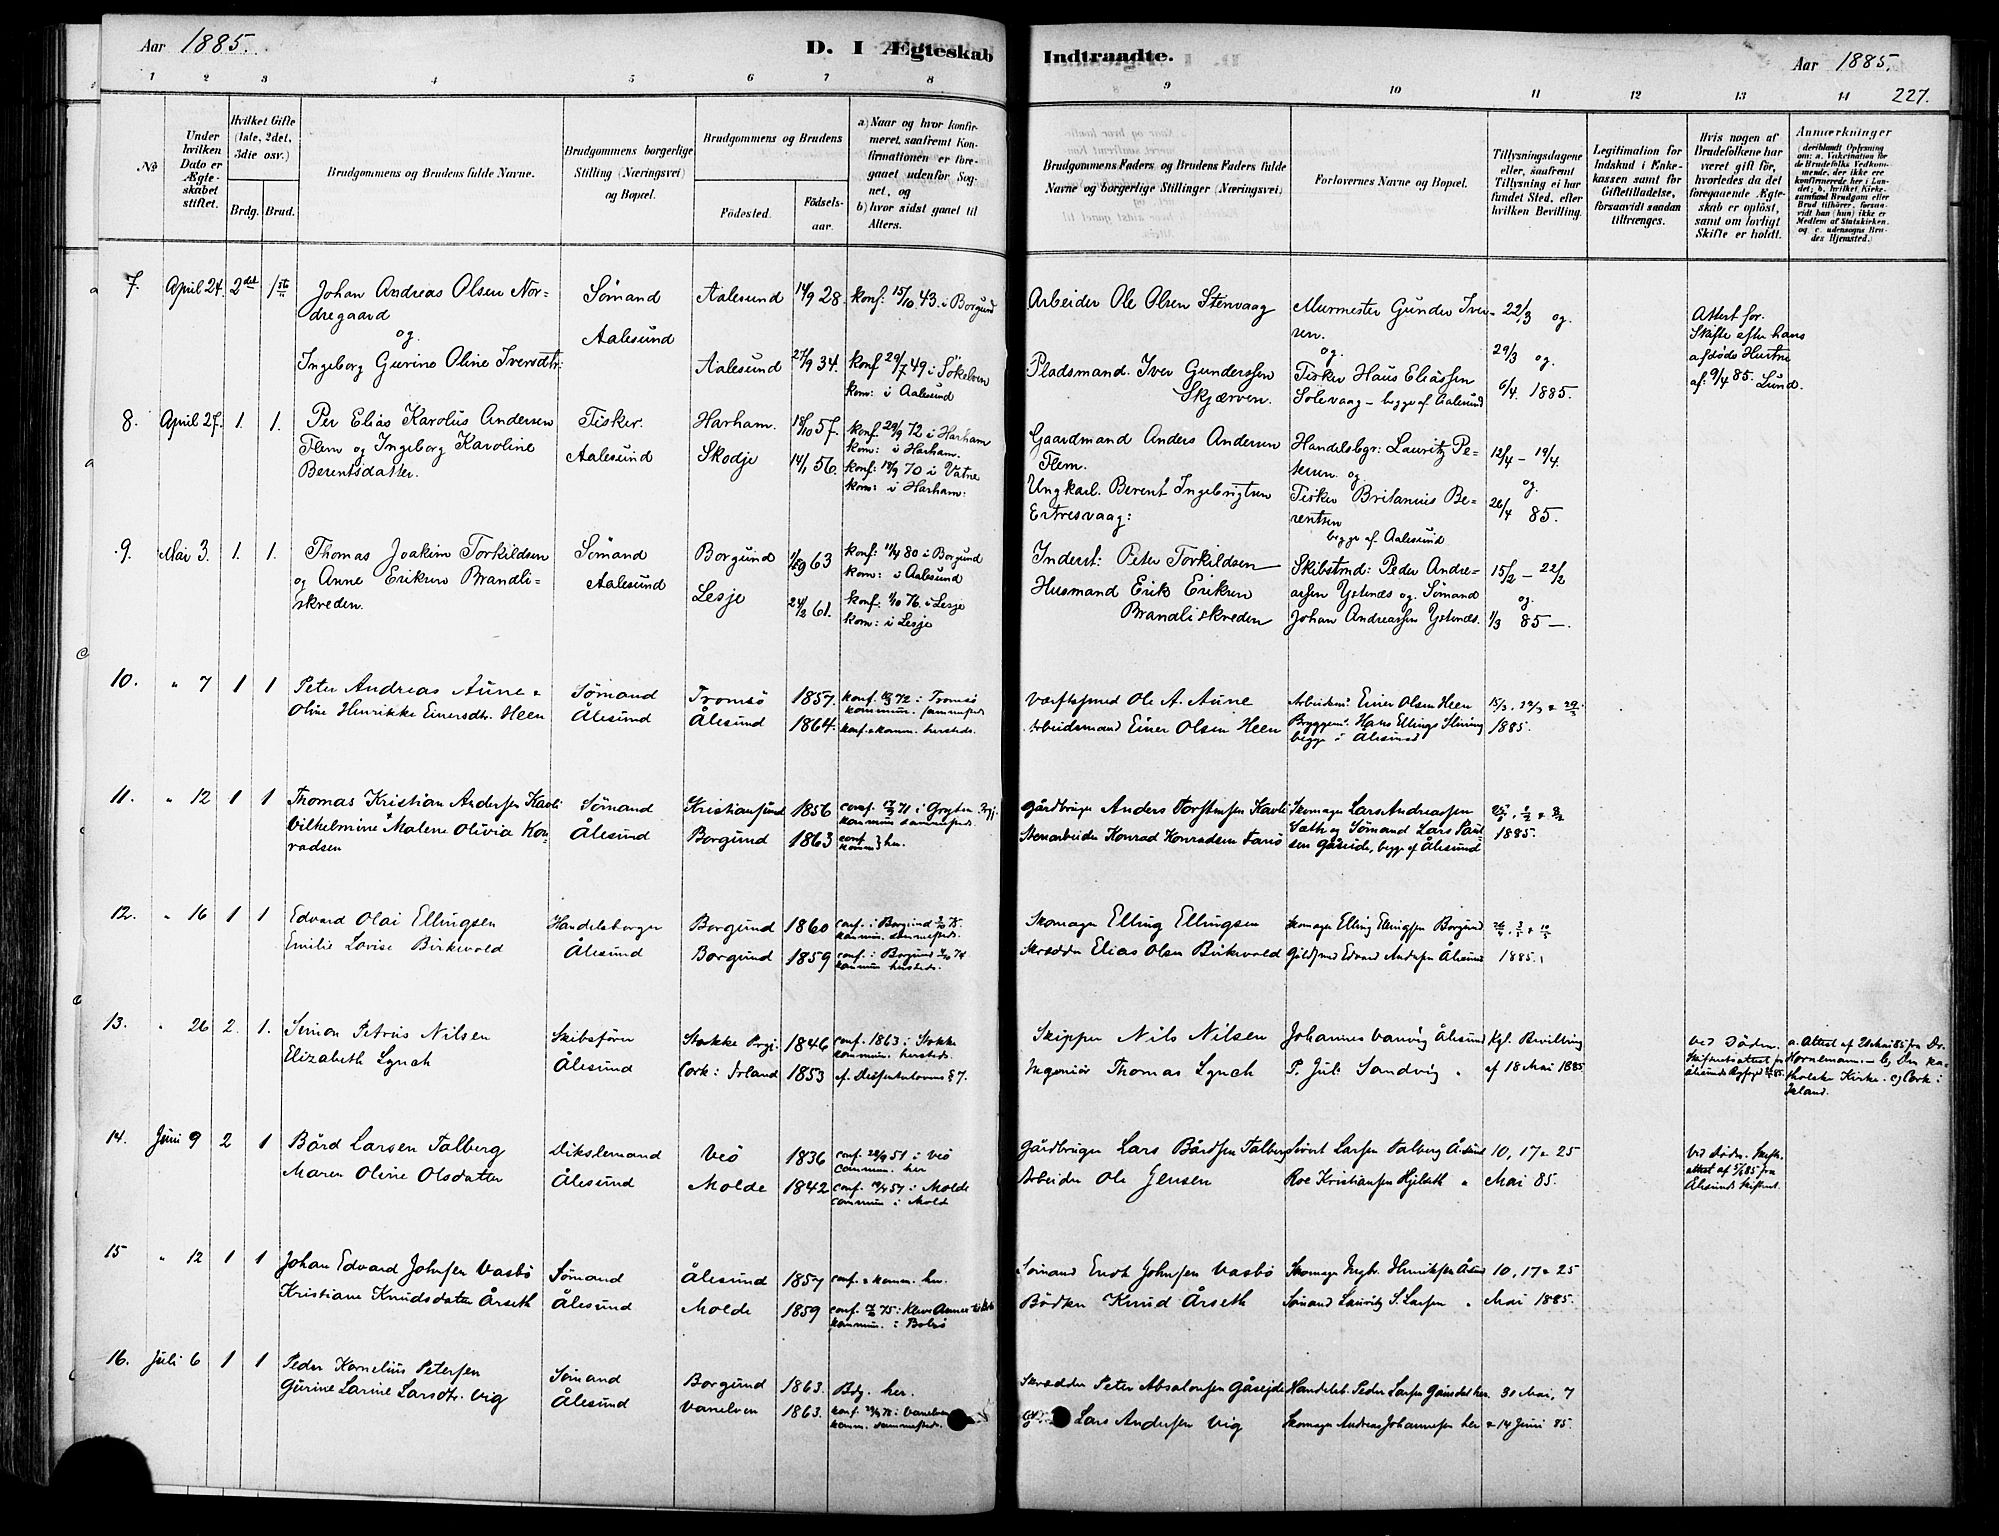 Aar 1885.
D. I Ægteskab Indtraadte.
Aar 1885.
227.
1 2 3 4 5 6 7 8 9 10 11 12 13 14
№
Under hvilken Dato er Ægteskabet stiftet.
Hvilket Gifte (1ste, 2det, 3die osv.)
Brdg. Brud.
Brudgommens og Brudens fulde Navne.
Brudgommens borgerlige Stilling (Næringsvei) og Bopæl.
Brudgommens og Brudens
Fødested.
Fødselsaar.
a) Naar og hvor konfirmeret, saafremt Konfirmationen er foregaaet udenfor Sognet, og
b) hvor sidst ganet til Alters.
Brudgommens Faders og Brudens Faders fulde Navne og borgerlige Stillinger (Næringsvei)
Forlovernes Navne og Bopæl.
Tillysningsdagene eller, saafremt Tillysning ei har fundet Sted, efter hvilken Bevilling.
Legitimation for Indskud i Enkekassen samt for Giftetilladelse, forsaavidt saadan tiltrænges.
Hvis nogen af Brudefolkene har været gift før, hvorledes da det foregaaende Ægteskab er opløst, samt om lovligt Skifte er holdt.
Anmærkninger (deriblandt Oplysning om: a. Vakcination for de Brudefolks Vedkommende, der ikke ere konfirmerede her i Landet; b. hvilket Kirkesamfund Brudgom eller Brud tilhører, forsaavidt han (hun) ikke er Medlem af Statskirken, og c. udensogns Brudes Hjemsted.)
7. April 24. 2det 1ste Johan Andreas Olsen Nordregaard og Ingeborg Gurine Oline Iversdtr:
Sømand Aalesund
Aalesund 14/9 28. konf. 15/10 43. i Borgund
Aalesund 27/9 34. konf 29/7 49 i Sökelven kom: i Aalesund
Arbeider Ole Olsen Stenvaag
Pladsmand. Iver Gunderssen Skjærven.
Murmester Gunder Iversen. og Fisker Hans Eliassen Solevaag – begge af Aalesund
22/3 og 29/3 og 6/4 1885.
Attest for Skifte efter hans afdøde Hustru af: 9/4 85. Lund.
8. April 27. 1. 1. Per Elias Karolus Andersen Flem og Ingeborg Karoline Berentsdatter.
Fisker. Aalesund
Harham. 18/10 57. konf 29/9 72 i Harham kom: i Harham.
Skodje 14/1 56. konf: 18/9 70 i Vatne kom: i Harham:
Gaardmand Anders Andersen Flem.
Ungkarl. Berent Ingebrigtsen Eitresvaag:
Handelsbgr: Lauritz Petersen og Fisker Britanius Berentsen begge af Aalesund
12/4 – 19/4. og 26/4 85.
9. Mai 3. 1. 1. Thomas Joakim Torkildsen og Anne Eriksen Brandliskreden.
Sømand Aalesund
Borgund 63 konf: 80 i Borgund kom: i Aalesund
Lesje 24/2 61. konf: 1/10 76. i Lesje kom: i Lesje
Inderst: Peter Torkildsen
Husmand Erik Eriksen Brandliskreden
Skibstmd: Peder Andreassen Ystenæs og Sømand Johan Andreassen Ystenæs.
15/2 – 22/2 og 1/3 85 –.
10. " 7 1 1 Peter Andreas Aune & Oline Henrikke Einersdtr. Heen
Sømand Ålesund
Tromsö 1857. konf. 72 i Tromsö kommun. sammesteds
Ålesund 1864. konf. & komm. hersteds.
Værftsfmed Ole A. Aune
Arbeidsmand Einer Olsen Heen
Arbeidsm. Einer Olsen Heen
Bryggem. Hans Ellings begge i Ålesund
15/3, 22/3 & 29/3 1885.
11. " 12 1 1 Thomas Kristian Andersen Kavli Vilhelmine Malene Olivia Konradsen
Sømand Ålesund
Kristiansund 1856 conf. 71 i Grytten Prgj. kommun sammesteds.
Borgund 1863 conf. komm. } her.
Gårdbruger Anders Torstensen Kavli
Stenarbeider Konrad Konradsen
Skomager Lars Andreassen Sæth og Sømand Lars Paulsen Gåseide, begge af Ålesund
1885.
12. " 16 1 1 Edvard Olai Ellingsen Emilie Lovise Birkevold
Handelsborger Ålesund
Borgund 1860 conf. i Borgund 75. kommun. sammesteds.
Borgund 1859 conf. i Borgund 74 kommun hersteds.
Skomager Elling Ellingsen
Skrædder Elias Olsen Birkevold
Skomager Elling Ellingsen Borgund
Guldsmed Edvard Andersen Ålesund
1885.
13. " 26 2. 1. Simon Petrus Nilsen Elizabeth Lynch
Skibsfører Ålesund
Stokke Prgj. 1846 conf. 1863 i Stokke kommun. hersteds.
Cork i Irland 1853 cf. Dissenterlovens § 7.
Skipper Nils Nilsen
Ingeniör Thomas Lynch
Johannes Vanvig Ålesund
P. Jul. Sandvig "
Kgl. Bevilling af 18 Mai 1885
Ved Döden. Skifteattest fra Ålesunds Byfoged 85.
a. Attest af 28 Mai 85 fra Dr. Hornemann. – b, Den katholske Kirke. c) Cork i Irland.
14. Juni 9 2 1 Bård Larsen Talberg Maren Oline Olsdatter
Dikslemand Ålesund
Veö 1836 conf. 28/9 51 i Veö commun. her
Molde 1842 conf. 57 i Molde commun i Mold
Gårdbruger Lars Bårdsen Talberg
Arbeider Ole Jensen
Sivert Larsen Talberg Ålesund
Roe Kristiansen Hjelseth "
10, 17 & 25 Mai 85.
Ved Döden. Skifteattest af 5/6 85 fra Ålesunds Skifteret.
15 " 12 1 1 Johan Edvard Johnsen Vasbö Kristiane Knudsdatter Årseth
Sømand Ålesund
Ålesund 1857 conf. & komm. her.
Molde 1859 conf. 75 i kommun. i Bolsö
Sømand Enok Johnsen Vasbö
Bödker Knud Årseth
Skomager Ingbr. Henriksen Ålesund
Sømand Lauritz S. Larsen "
10, 17 & 25 Mai 1885.
16. Juli 6 1 1 Peder Kornelius Petersen Gurine Larine Larsdtr. Vig
Sømand Ålesund
Borgund 1863. Bdg. her.
Vanelven 1863. konf. 78 i Vanelven komm. sammesteds.
Skrædder Peter Absalonsen Gåseide
Lars Andersen Vig
Handelsb. Peder Larsen Gåseidet her
Skomager Andreas Johannesen her
31 Mai, 7 & 14 Juni 85.